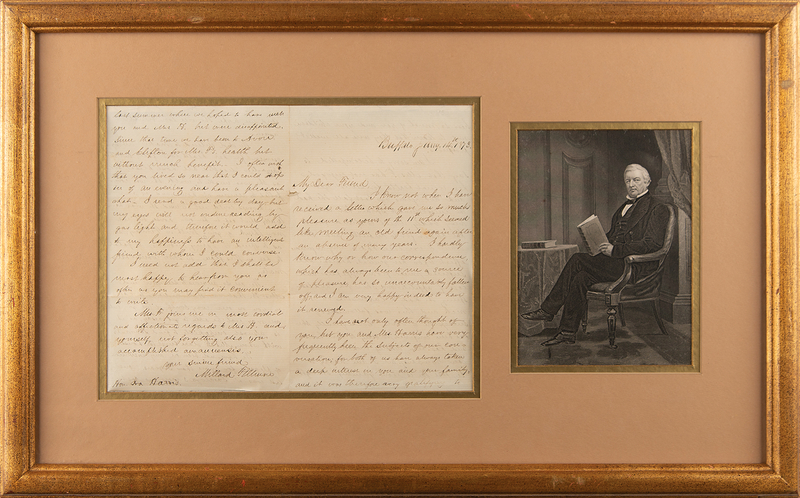 Buffalo, Aug. 14th 187
My Dear Friend
I know not when I have
received a letter which gave me so much
pleasure as yours of the 11th which seemed
like meeting an old friend again after
an absence of many years. I hardly
know why or how our correspondence
which has always been to me a source
of pleasure has so unaccountably fallen
off; and I am very happy indeed to have
it revived.
I have not only often thought of
you, but you and Mrs Harris have very
frequently been the subjects of our con-
versation, for both of us have always taken
a deep interest in you and your family,
and it was therefore
last summer where we hoped to have met
you and Mrs H. but were disappointed.
Since that time we have been to Avon
and Clifton for Mrs. F's health but
without much benefit. I often wish
that you lived so near that I could drop
in of an evening and have a pleasant
chat. I read a good deal by day but
my eyes will not endure reading by
gas light and therefore it would add
to my happiness to have an intelligent
friend with whom I could converse.
I need not add that I shall be
most happy to hear from you as
often as you may find it convenient
to write.
Mrs. F. joins me in most cordial
and affectionate regards to Mrs H. and
yourself, not forgetting also your
accomplished
Your sincere friend
Millard Fillmore
Hon. Ira Harris